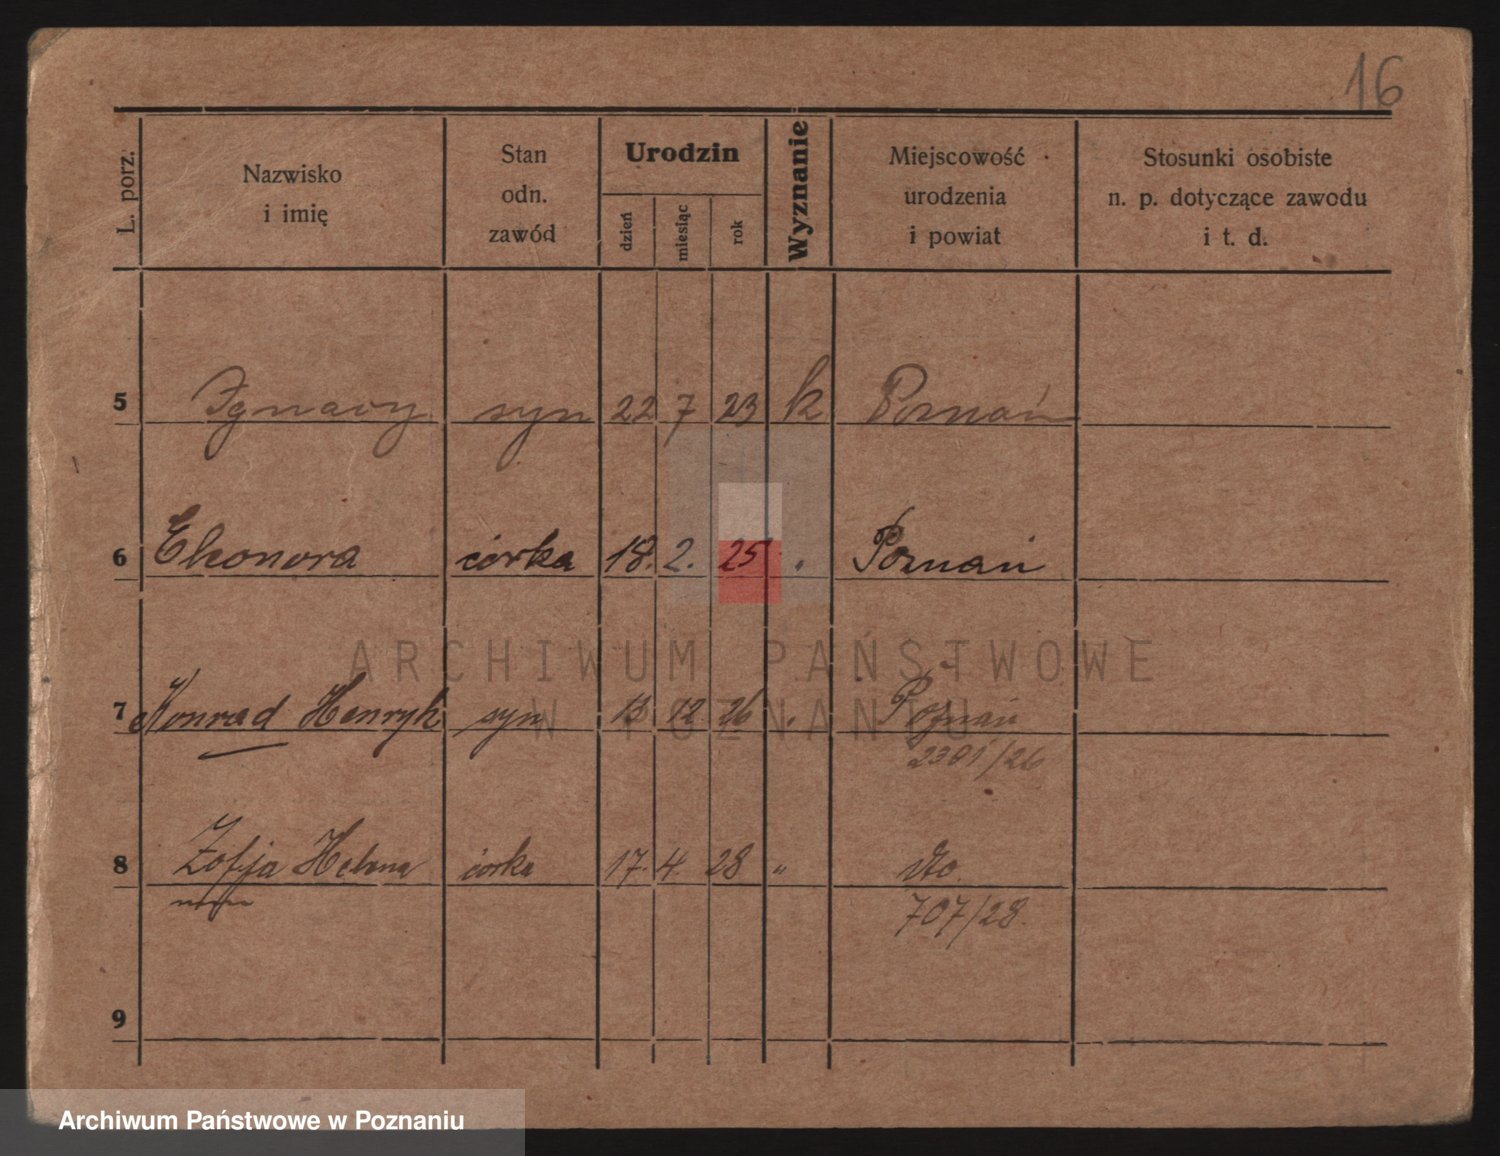 16
L. porz.
Nazwisko
i imię
Stan
odn.
zawód
Urodzin
dzień
miesiąc
rok
Wyznanie
Miejscowość
urodzenia
i powiat
Stosunki osobiste
n. p. dotyczące zawodu
i t. d.
5 Ignacy syn 22 7 23 k Poznań
6 Eleonora córka 18. 2. 25 " Poznań
7 Konrad Henryk syn 13 12 26 " Poznań
2301/26
8 Zofja Helena córka 17. 4. 28 " dto
707/28.
9
ARCHIWUM PAŃSTWOWE
W POZNANIU
Archiwum Państwowe w Poznaniu